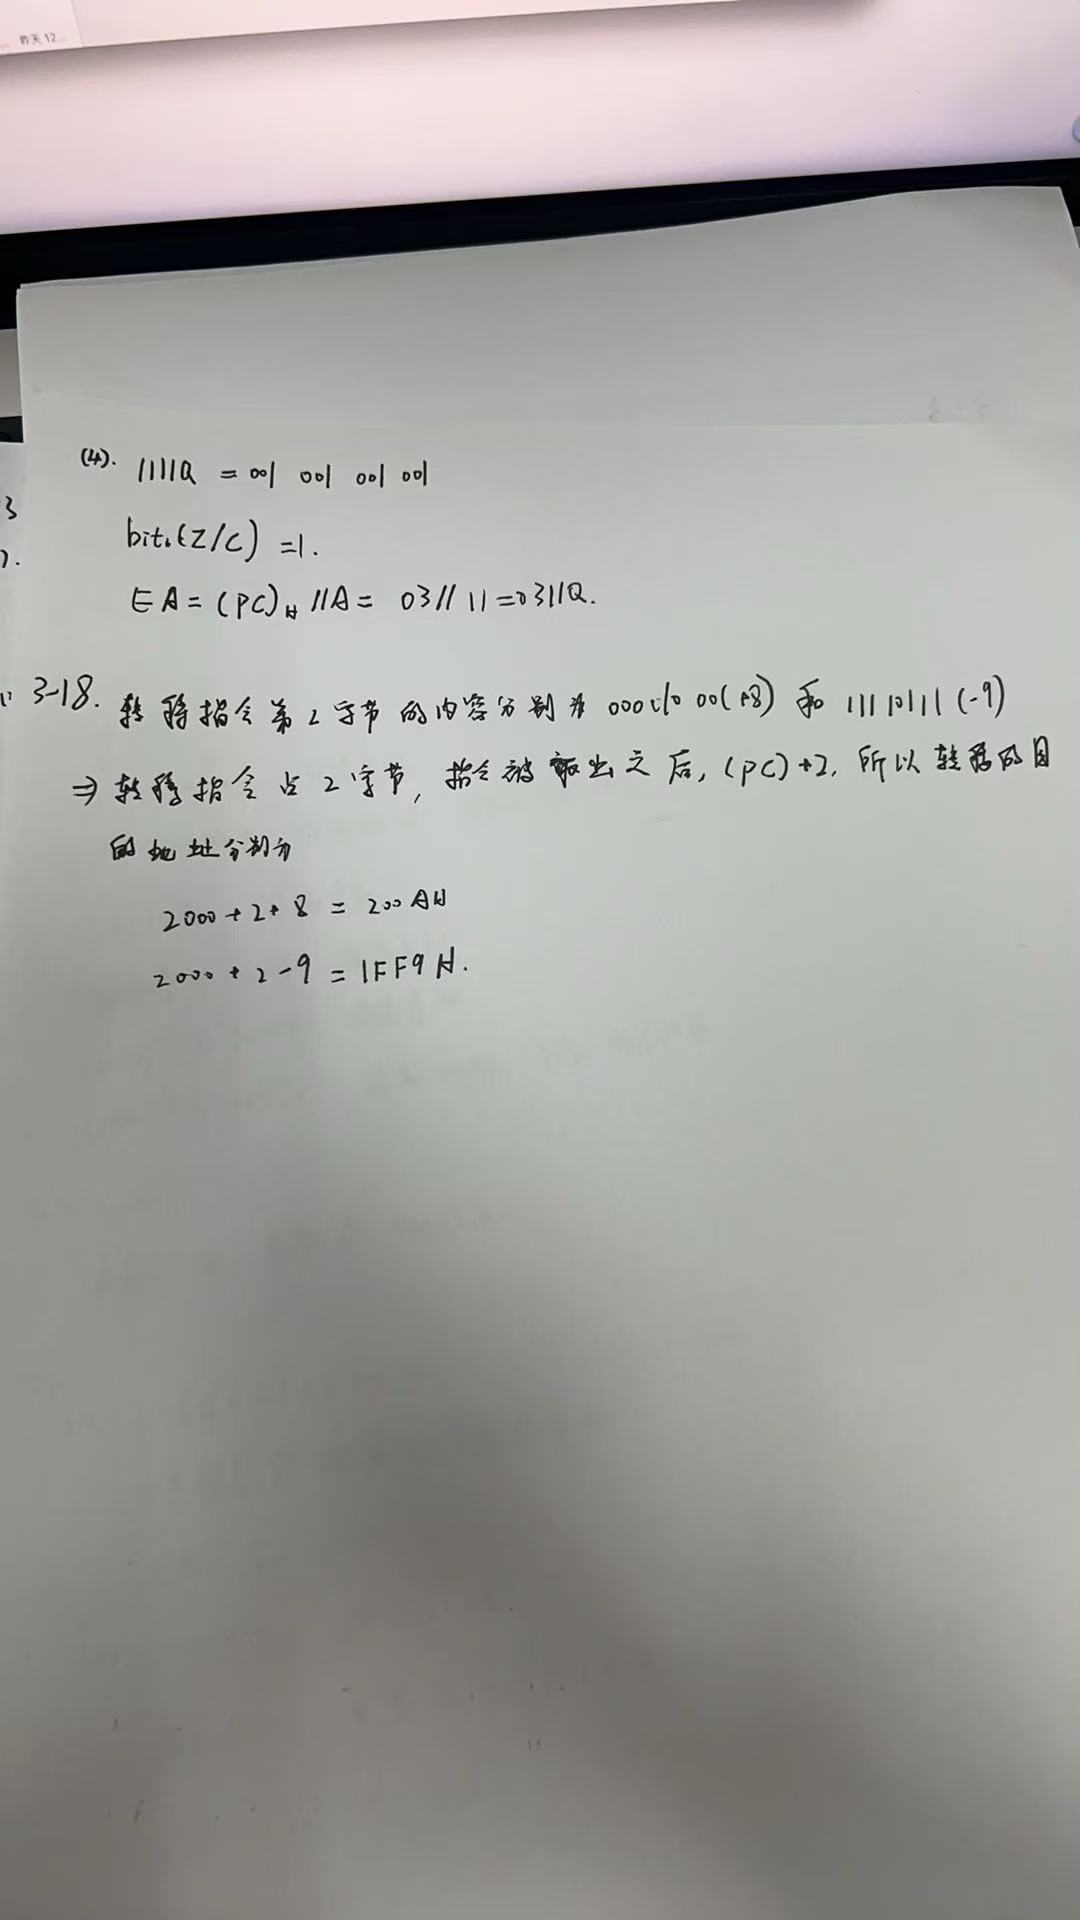 昨天 12...
(4). 1111Q = 001 001 001 001
3
bit。(Z/C) =1.
7.
EA=(PC)H//A= 03//11=0311Q.
3-18. 转移指令第2字节的内容分别为00001000(+8) 和 11110111(-9)
⇒ 转移指令占2字节, 指令被取出之后, (PC)+2, 所以转移的目
的地址分别为
2000+2+8 = 200AH
2000+2-9 = 1FF9H.